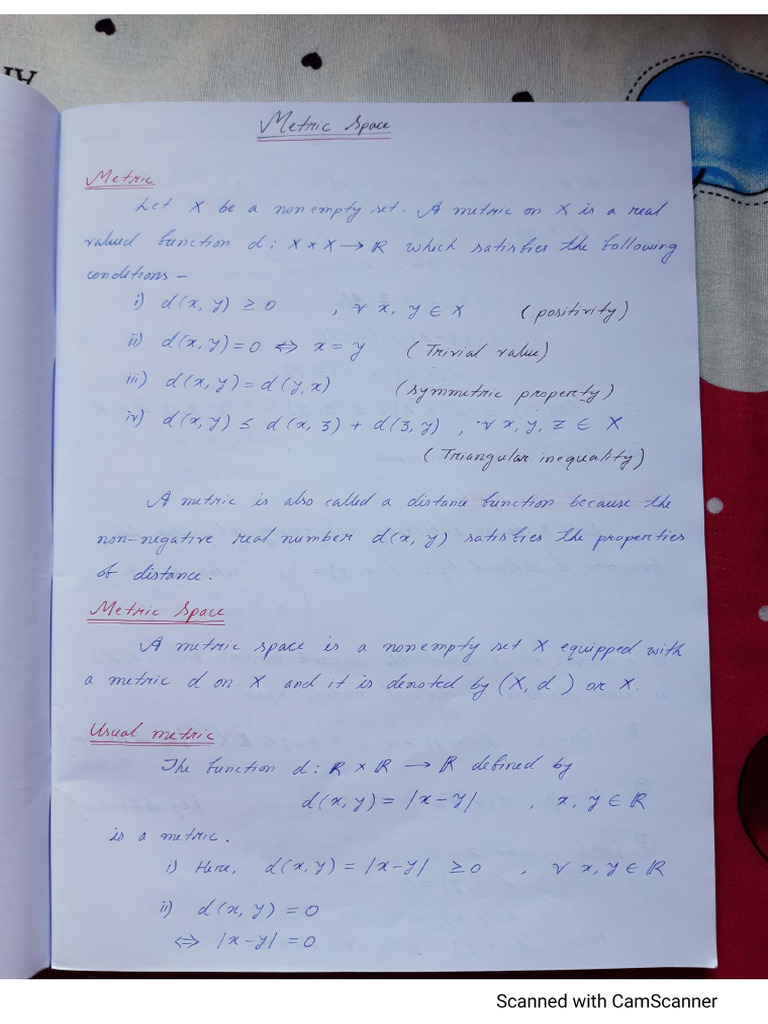 Metric Space
Metric
Let X be a nonempty set. A metric on X is a real
valued function d : X × X → ℝ which satisfies the following
conditions –
i) d(x, y) ≥ 0 , ∀ x, y ∈ X (positivity)
ii) d(x, y) = 0 ⇔ x = y (Trivial value)
iii) d(x, y) = d(y, x) (symmetric property)
iv) d(x, y) ≤ d(x, z) + d(z, y) , ∀ x, y, z ∈ X
(Triangular inequality)
A metric is also called a distance function because the
non-negative real number d(x, y) satisfies the properties
of distance.
Metric Space
A metric space is a nonempty set X equipped with
a metric d on X and it is denoted by (X, d) or X.
Usual metric
The function d : ℝ × ℝ → ℝ defined by
d(x, y) = |x – y| , x, y ∈ ℝ
is a metric.
i) Here, d(x, y) = |x – y| ≥ 0 , ∀ x, y ∈ ℝ
ii) d(x, y) = 0
⇔ |x – y| = 0
Scanned with CamScanner